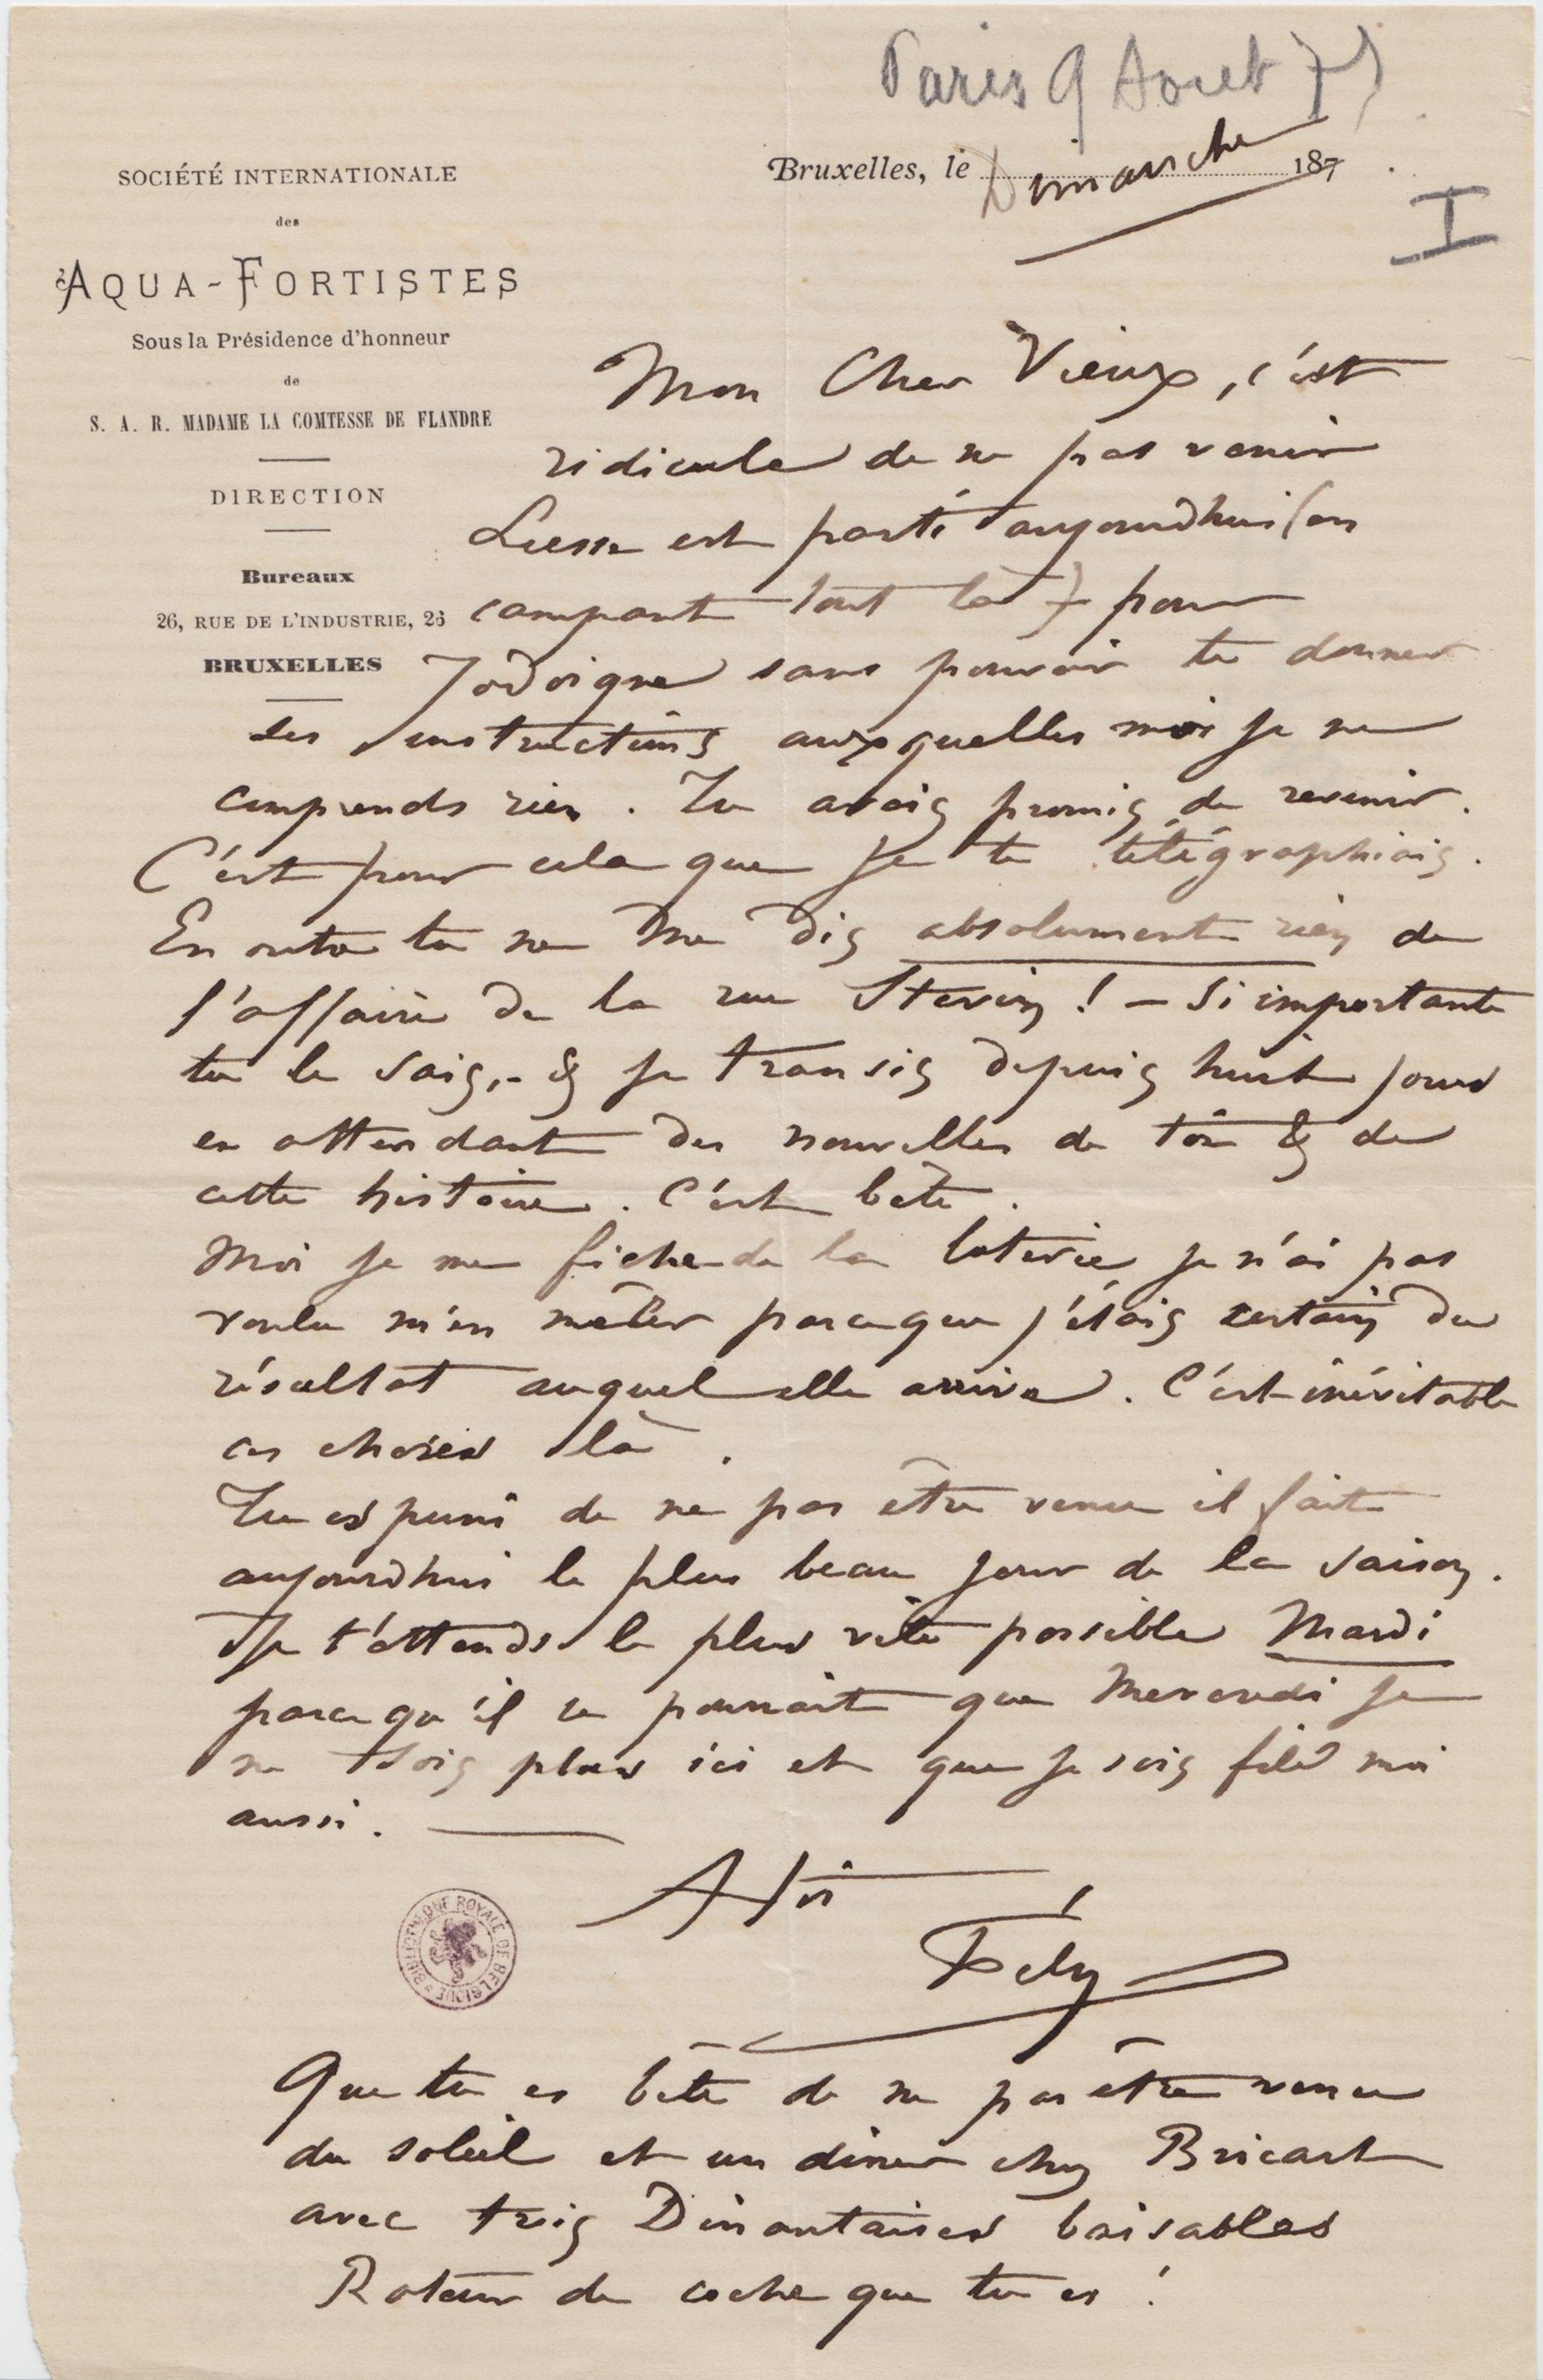 Paris 9 Aout 75
Bruxelles, le Dimanche 187
I
SOCIÉTÉ INTERNATIONALE
des
AQUA-FORTISTES
Sous la Présidence d'honneur
de
S. A. R. MADAME LA COMTESSE DE FLANDRE
DIRECTION
Bureaux
26, RUE DE L'INDUSTRIE, 26
BRUXELLES
Mon Cher Vieux, c'est
ridicule de ne pas venir
Liesse est parti aujourdhui (en
campant tout là) pour
Jodoigne sans pouvoir te donner
ses instructions auxquelles moi je ne
comprends rien. Tu avais promis de revenir.
C'est pour cela que je te télégraphiais.
En outre tu ne me dis absolument rien de
l'affaire de la rue Stevin! – Si importante
tu le sais, – & je transis depuis huit jours
en attendant des nouvelles de toi & de
cette histoire. C'est bête.
Moi je me fiche de la loterie je n'ai pas
voulu m'en mêler parceque j'étais certain du
résultat auquel elle arrive. C'est inévitable
ces choses là.
Tu es puni de ne pas être venu il fait
aujourdhui le plus beau jour de la saison.
Je t'attends le plus vite possible Mardi
parcequ'il se pourrait que Mercredi je
ne sois plus ici et que je sois filé moi
aussi.
A toi
Fély
BIBLIOTHEQUE ROYALE DE BELGIQUE
Que tu es bête de ne pas être venu
du soleil et un diner chez Bricart
avec trois Dinantaises baisables
Rateur de coche que tu es !